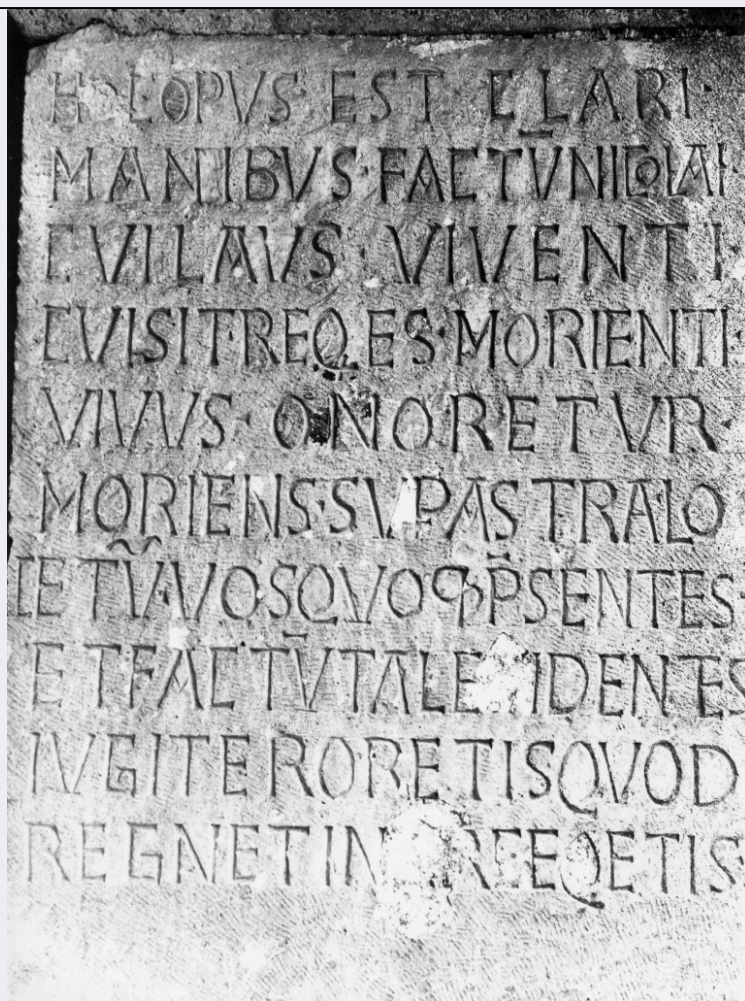 HOC OPVS EST CLARI·
MANIBVS·FACTV NICOLAI·
CVI LAVS VIVENTI
CVI SIT REQES·MORIENTI·
VIVVS·ONORETVR·
MORIENS·SVP ASTRA LO
CETV̅ VOS QVOQ P̅SENTES·
ET FACTV̅ TALE IDENTES
IVGITER ORETIS QVOD
REGNET IN REEQETIS